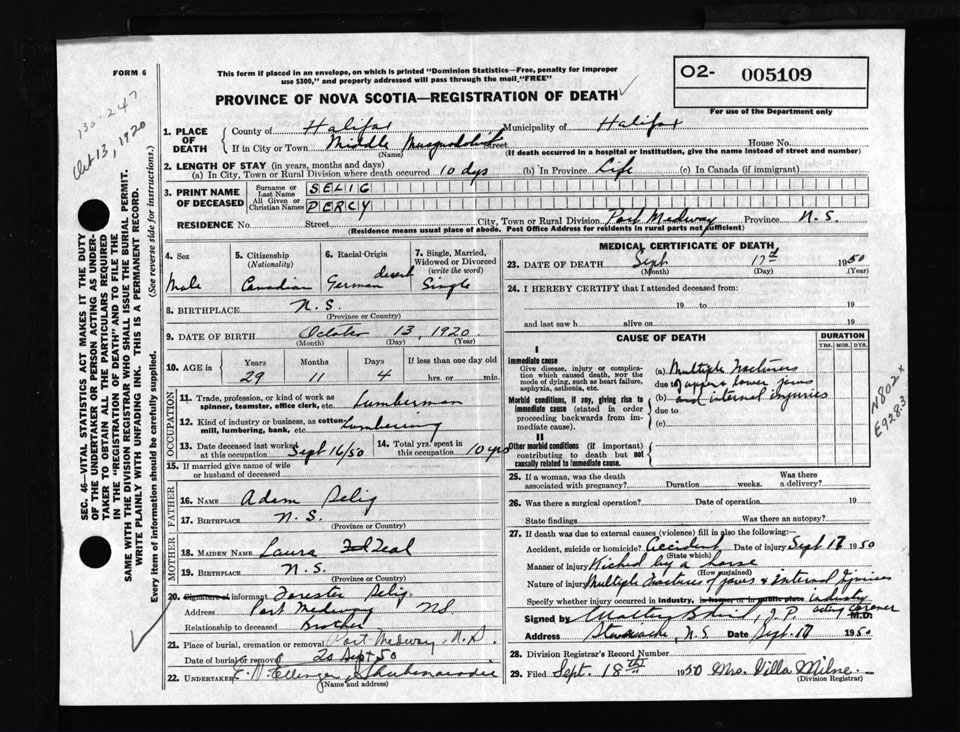 FORM 6
This form if placed in an envelope, on which is printed "Dominion Statistics—Free, penalty for improper
use $300," and properly addressed will pass through the mail "FREE"
PROVINCE OF NOVA SCOTIA—REGISTRATION OF DEATH
O2- 005109
For use of the Department only
130-247
Oct 13, 1920
SEC. 46—VITAL STATISTICS ACT MAKES IT THE DUTY
OF THE UNDERTAKER OR PERSON ACTING AS UNDER-
TAKER TO OBTAIN ALL THE PARTICULARS REQUIRED
IN THE "REGISTRATION OF DEATH" AND TO FILE THE
SAME WITH THE DIVISION REGISTRAR WHO SHALL ISSUE THE BURIAL PERMIT.
WRITE PLAINLY WITH UNFADING INK. THIS IS A PERMANENT RECORD.
Every item of information should be carefully supplied. (See reverse side for instructions.)
1. PLACE OF DEATH County of Halifax Municipality of Halifax
If in City or Town Middle Musquodoboit Street House No.
(Name) (If death occurred in a hospital or institution, give the name instead of street and number)
2. LENGTH OF STAY (in years, months and days)
(a) In City, Town or Rural Division where death occurred 10 dys (b) In Province Life (c) In Canada (if immigrant)
3. PRINT NAME OF DECEASED Surname or Last Name SELIG
All Given or Christian Names PERCY
RESIDENCE No. Street City, Town or Rural Division Port Medway Province N.S.
(Residence means usual place of abode. Post Office Address for residents in rural parts not sufficient)
4. Sex Male
5. Citizenship (Nationality) Canadian
6. Racial Origin German descent
7. Single, Married, Widowed or Divorced (write the word) Single
8. BIRTHPLACE N.S.
(Province or Country)
9. DATE OF BIRTH October 13, 1920
(Month) (Day) (Year)
10. AGE in Years Months Days If less than one day old
29 11 4 hrs. or min.
OCCUPATION
11. Trade, profession, or kind of work as spinner, teamster, office clerk, etc. Lumberman
12. Kind of industry or business, as cotton mill, lumbering, bank, etc. Lumbering
13. Date deceased last worked at this occupation Sept 16/50
14. Total yrs. spent in this occupation 10 yrs
15. If married give name of wife or husband of deceased
FATHER
16. NAME Adam Selig
17. BIRTHPLACE N.S.
(Province or Country)
MOTHER
18. MAIDEN NAME Laura Teal
19. BIRTHPLACE N.S.
(Province or Country)
20. Signature of informant Forester Selig
Address Port Medway NS.
Relationship to deceased Brother
21. Place of burial, cremation or removal Port Medway, N.S.
Date of burial or removal 20 Sept 50
22. UNDERTAKER Shubenacadie
(Name and address)
MEDICAL CERTIFICATE OF DEATH
23. DATE OF DEATH Sept 17th 1950
(Month) (Day) (Year)
24. I HEREBY CERTIFY that I attended deceased from:
19 to 19
and last saw h alive on 19
CAUSE OF DEATH
DURATION
YRS. MOS. DYS.
I
Immediate cause
Give disease, injury or complication which caused death, NOT the mode of dying, such as heart failure, asphyxia, asthenia, etc.
(a) Multiple fractures
due to of upper & lower jaws
Morbid conditions, if any, giving rise to immediate cause (stated in order proceeding backwards from immediate).
(b) and internal injuries
due to
(c)
II
Other morbid conditions (if important) contributing to death but not causally related to immediate cause.
N802x
E928.3
25. If a woman, was the death associated with pregnancy? Duration weeks. Was there a delivery?
26. Was there a surgical operation? Date of operation 19
State findings Was there an autopsy?
27. If death was due to external causes (violence) fill in also the following:
Accident, suicide or homicide? Accident Date of injury Sept 17 1950
(State which)
Manner of injury Kicked by a horse
(How sustained)
Nature of injury Multiple fractures of jaws & Internal Injuries
Specify whether injury occurred in industry, in home, or in public place industry
Signed by J.P. acting coroner M.D.
Address Stewiacke, N.S Date Sept. 17 1950
28. Division Registrar's Record Number
29. Filed Sept. 18th 1950 Mrs. Villa Milne
(Division Registrar)